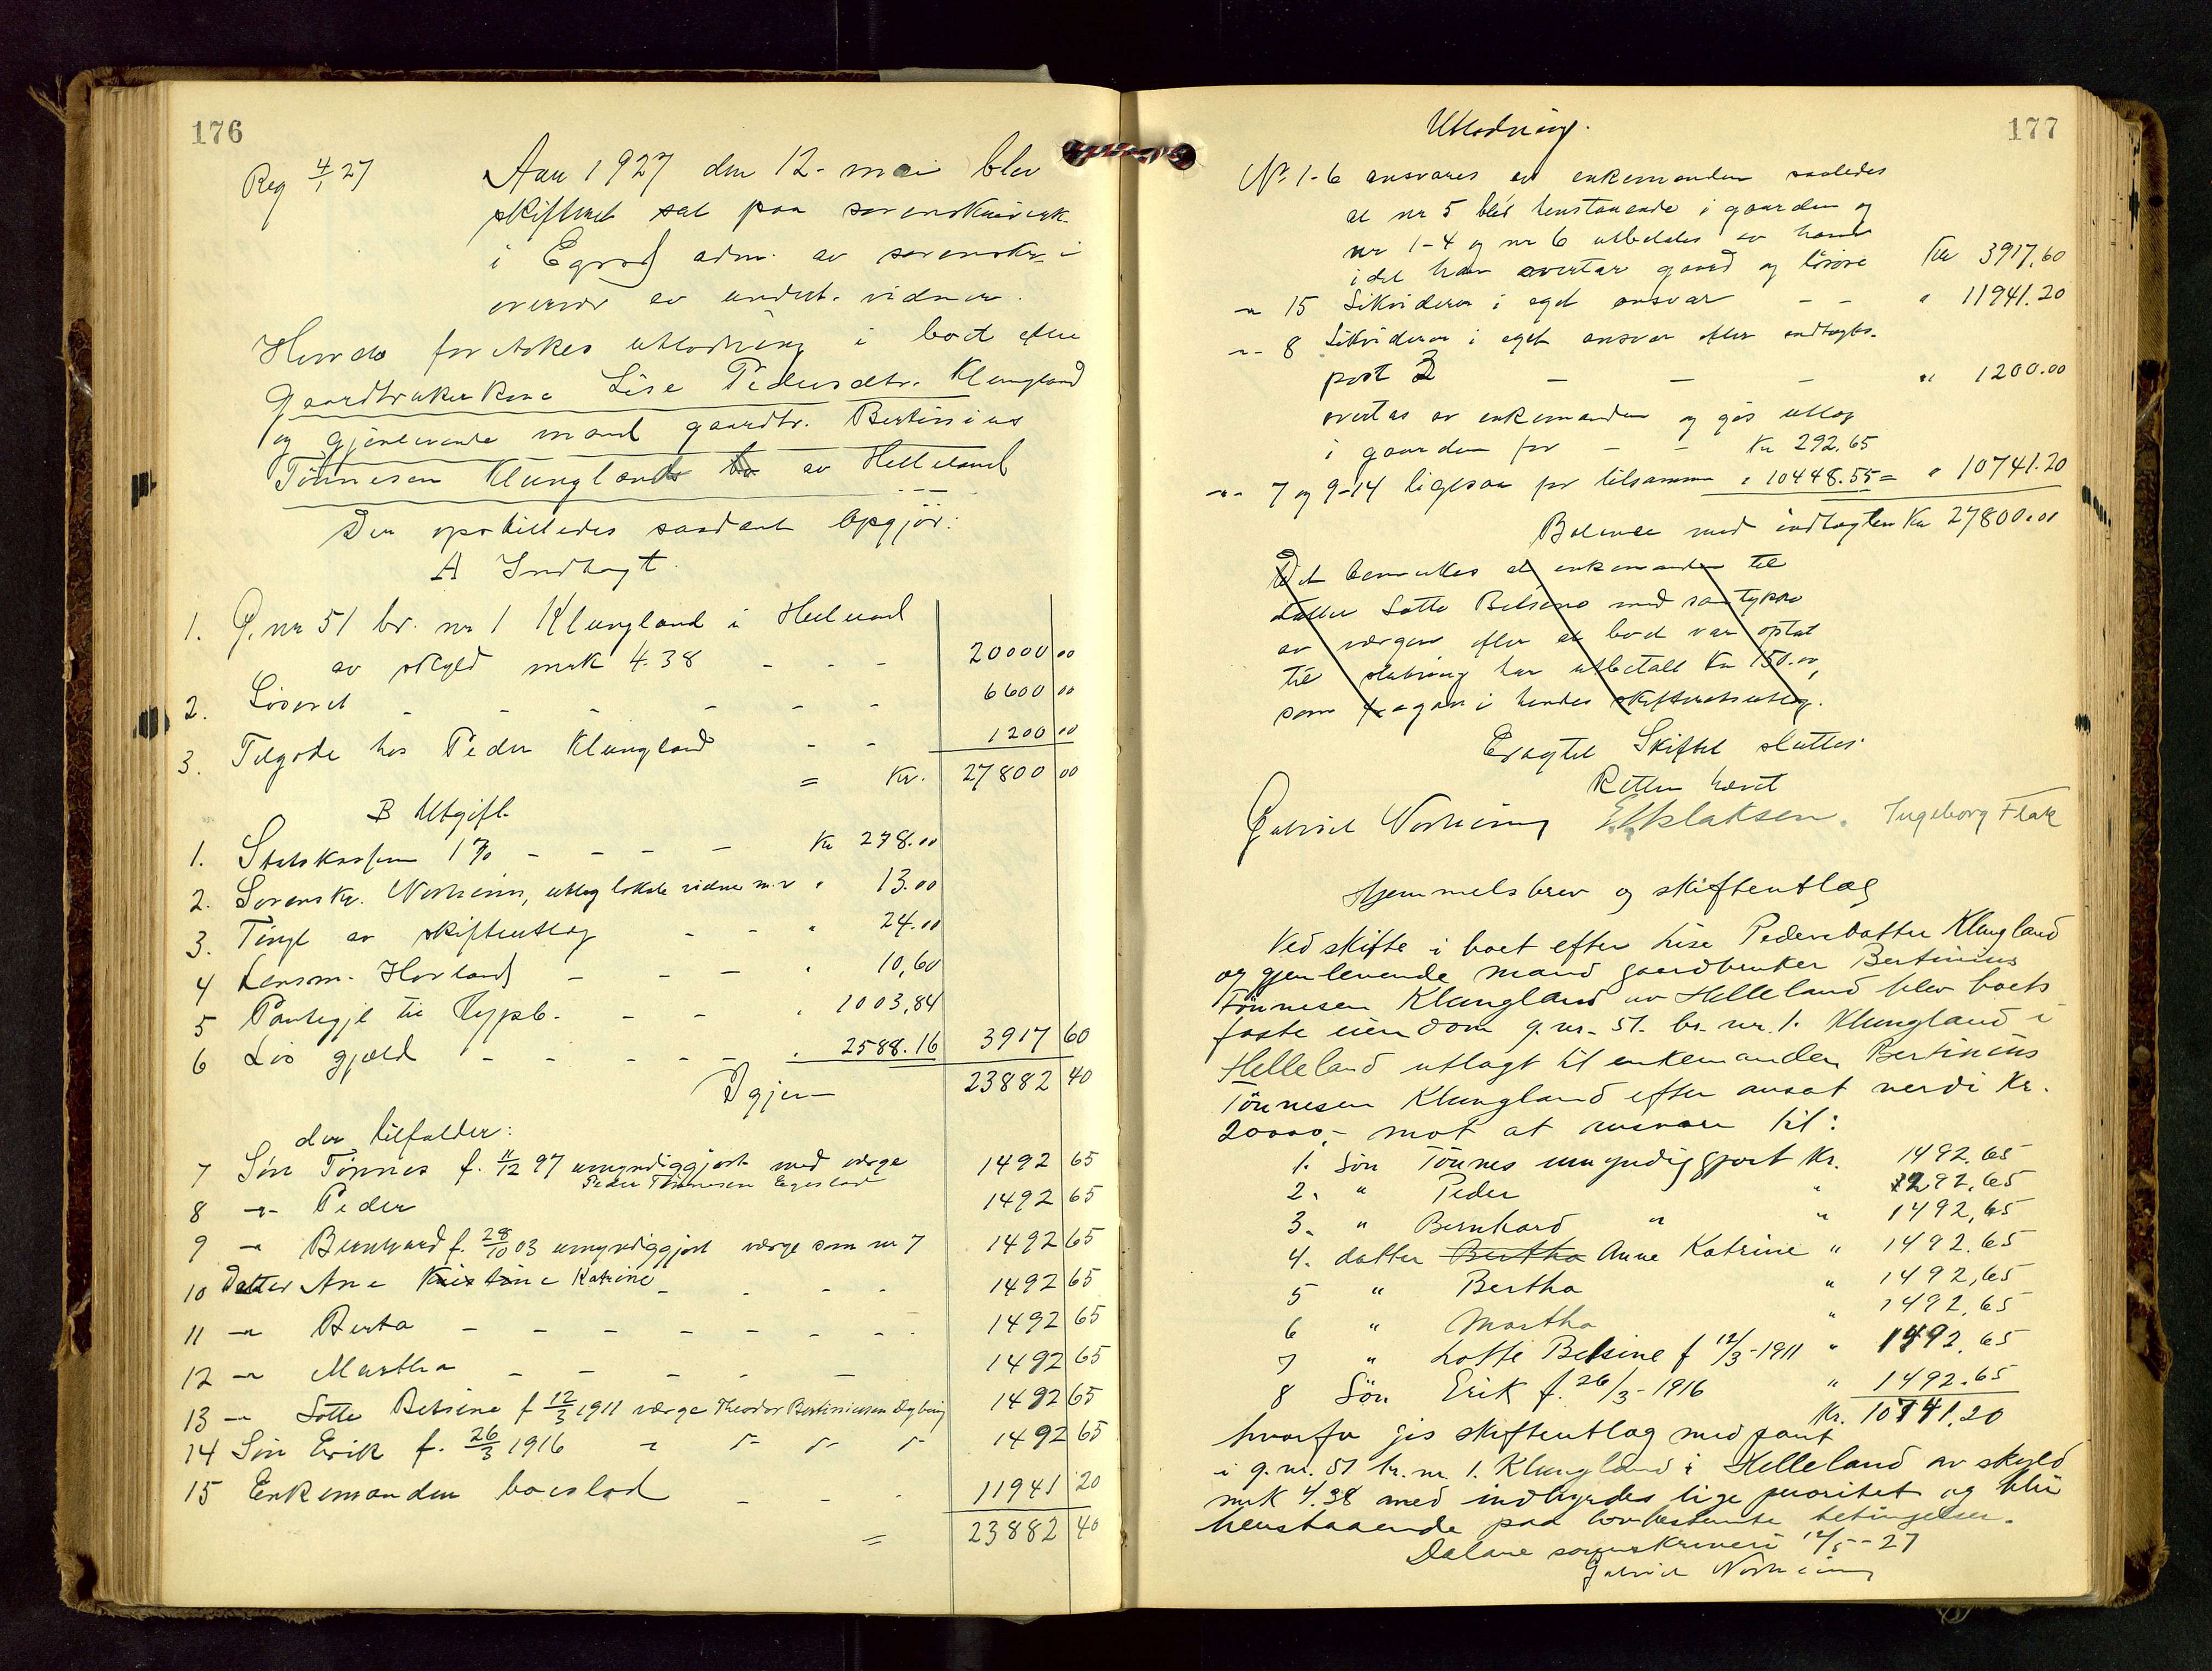 176
Reg 4/1 27
Aar 1927 den 12- mai blev
skifteret sat paa sorenskriverk.
i Egersd adm. av sorenskr. i
overvær av undert. vidner.
Herr da foretokes utlodning i boet efter
Gaardbrukerkone Lise Pedersdtr. Klungland
og gjenlevende mand gaardbr. Bertinius
Tønnesen Klungland av Helleland
Der opstilledes saadant Opgjør:
A Indtægt.
1. G. nr 51 br. nr 1 Klungland i Helleland
av skyld mrk 4.38 - - - 20000 00
2. Løsøret - - - - - - 6600 00
3. Tilgode hos Peder Klungland - - 1200 00
= Kr. 27800 00
B Utgift.
1. Statskassen 1% - - - - Kr 278.00
2. Sorenskr. Norheim, utlæg lokale vidner m.v " 13.00
3. Tingl av skifteutlæg - - " 24.00
4 Lensm. Hovland - - - " 10,60
5 Pantegjl til Hypb. - - - " 1003,84
6 Løs gjæld - - - - - " 2588.16 3917 60
Igjen 23882 40
der tilfalder:
7 Søn Tønnes f. 11/12 97 umyndiggjort med værge 1492 65
Peder Tønnesen Egeland
8 -"- Peder 1492 65
9 -"- Bernhard f. 28/10 03 umyndiggjort værge som nr 7 1492 65
10 Datter Ane Kristine Katrine - - - - 1492 65
11 -"- Berta - - - - - - - - 1492 65
12 -"- Martha - - - - - 1492 65
13 -"- Lotte Betsine f 12/3 1911 værge Theodor Bertiniusen Dybing 1492 65
14 Søn Erik f. 26/3 1916 " " " " 1492 65
15 Enkemanden boeslod - - - 11941 20
= 23882 40
177
Utlodning.
Nr 1-6 ansvares av enkemanden saaledes
at nr 5 blir henstaaende i gaarden og
nr 1-4 og nr 6 utbetales av ham
idet han overtar gaard og løsøre Kr 3917,60
-"- 15 Likviderer i eget ansvar - - " 11941.20
-"- 8 Likviderer i eget ansvar efter indtægts-
post 3 - - - " 1200.00
overtas av enkemanden og gis utlæg
i gaarden for - - Kr 292.65
-"- 7 og 9-14 ligesaa for tilsammen " 10448.55 = " 10741.20
Balance med indtægten Kr 27800.00
Det bemerkes at enkemanden til
datter Lotte Betsine med samtykke
av værgen efter at boet var optat
til slutning har utbetalt Kr 150.00,
som fragaar i hendes skifteretsutlæg.
Eragtet Skiftet sluttes
Retten hævet
Gabriel Norheim E. Aslaksen. Ingeborg Flak
Hjemmelsbrev og skifteutlæg
Ved skifte i boet efter Lise Pedersdatter Klungland
og gjenlevende mand gaardbruker Bertinius
Tønnesen Klungland av Helleland blev boets
faste eiendom g. nr. 51. br. nr. 1. Klungland i
Helleland utlagt til enkemanden Bertinius
Tønnesen Klungland efter ansat verdi Kr.
20000,- mot at ansvare til:
1. Søn Tönnes umyndiggjort Kr. 1492.65
2. " Peder " 292.65
3. " Bernhard " " 1492,65
4. datter Bertha Anne Katrine " 1492.65
5 " Bertha " 1492,65
6 " Martha " 1492.65
7 " Lotte Betsine f 12/3-1911 " 1492.65
8 Søn Erik f. 26/3-1916 " 1492.65
Kr. 10741,20
hvorfor gis skifteutlæg med pant
i g. nr. 51 br. nr. 1. Klungland i Helleland av skyld
mrk 4.38 med indbyrdes lige prioritet og blir
henstaaende paa lovbestemte betingelser.
Dalane sorenskriveri 12/5-27
Gabriel Norheim